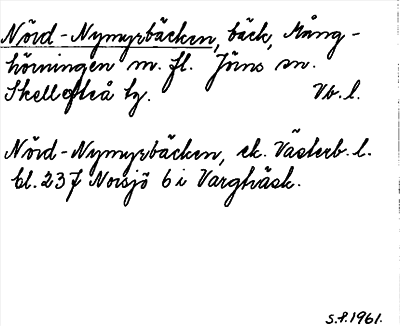 Nörd-Nymyrbäcken, bäck, Mång-
hörningen m. fl. Jörns sn.
Skellefteå tg. Vb. l.
Nörd-Nymyrbäcken, ek. Västerb. l.
bl. 237 Norsjö 6 i Vargträsk.
S.F. 1961.